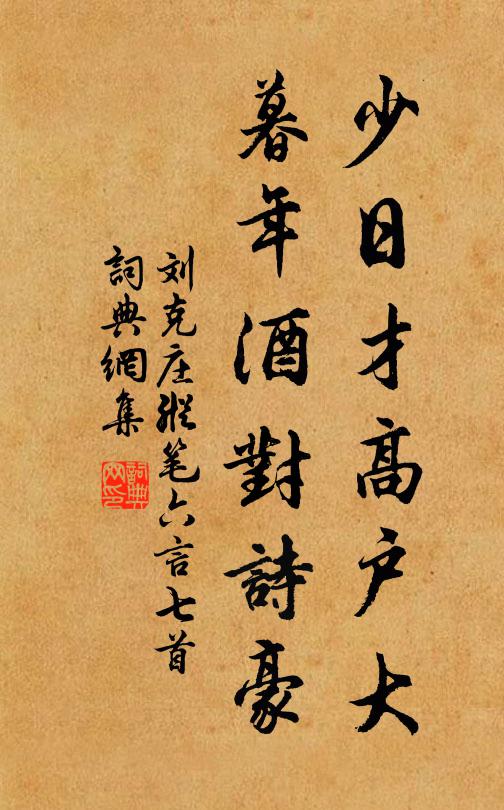 少日才高户大
暮年酒對詩豪
刘克庄縱笔六言七首
詞典網集
詞典
网印